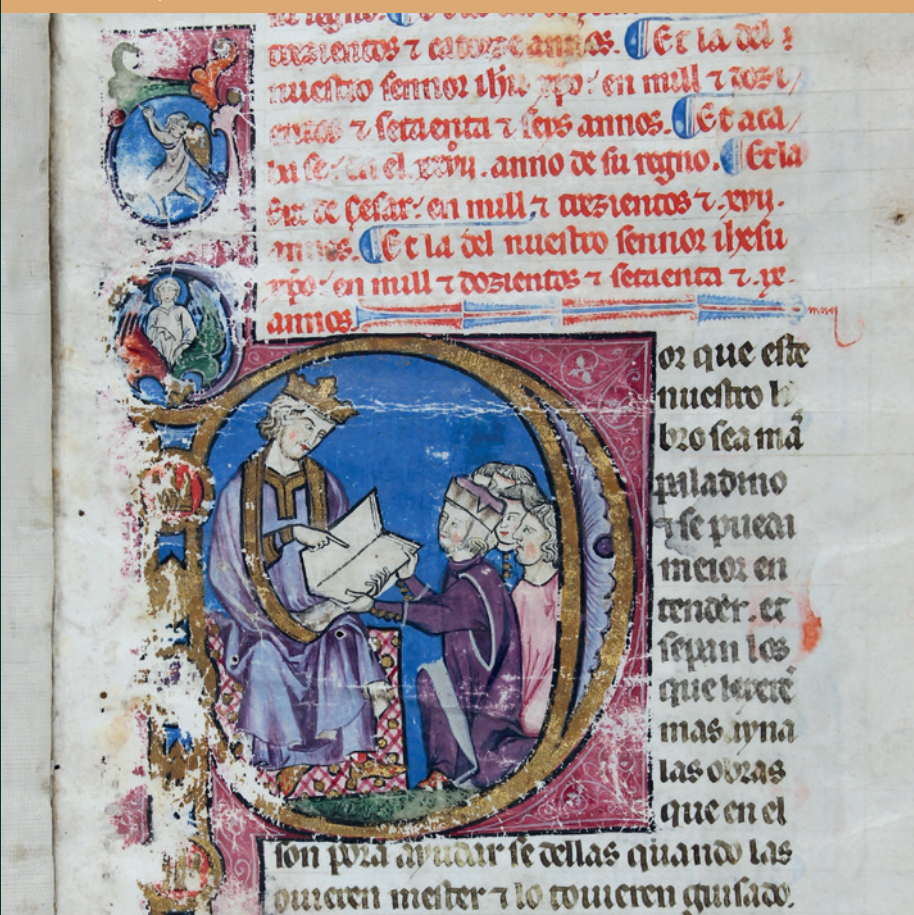 trezientos ⁊ catorze annos. ¶ Et la del
nuestro sennor ihu xpo. en mill ⁊ dozi
entos ⁊ setaenta ⁊ seys annos. ¶ Et aca
base en el xxvii. anno de su regno. ¶ Et la
Era de Cesar. en mill ⁊ trezientos ⁊ xvii.
annos. ¶ Et la del nuestro sennor ihesu
xpo. en mill ⁊ dozientos ⁊ setaenta ⁊ .ix.
annos.
or que este
nuestro li
bro sea mas
paladino
⁊ se pueda
meior en
tender. et
sepan los
que leyerẽ
mas ayna
las obras
que en el
son pora ayudar se dellas quando las
ouieren mester ⁊ lo touieren guisado.